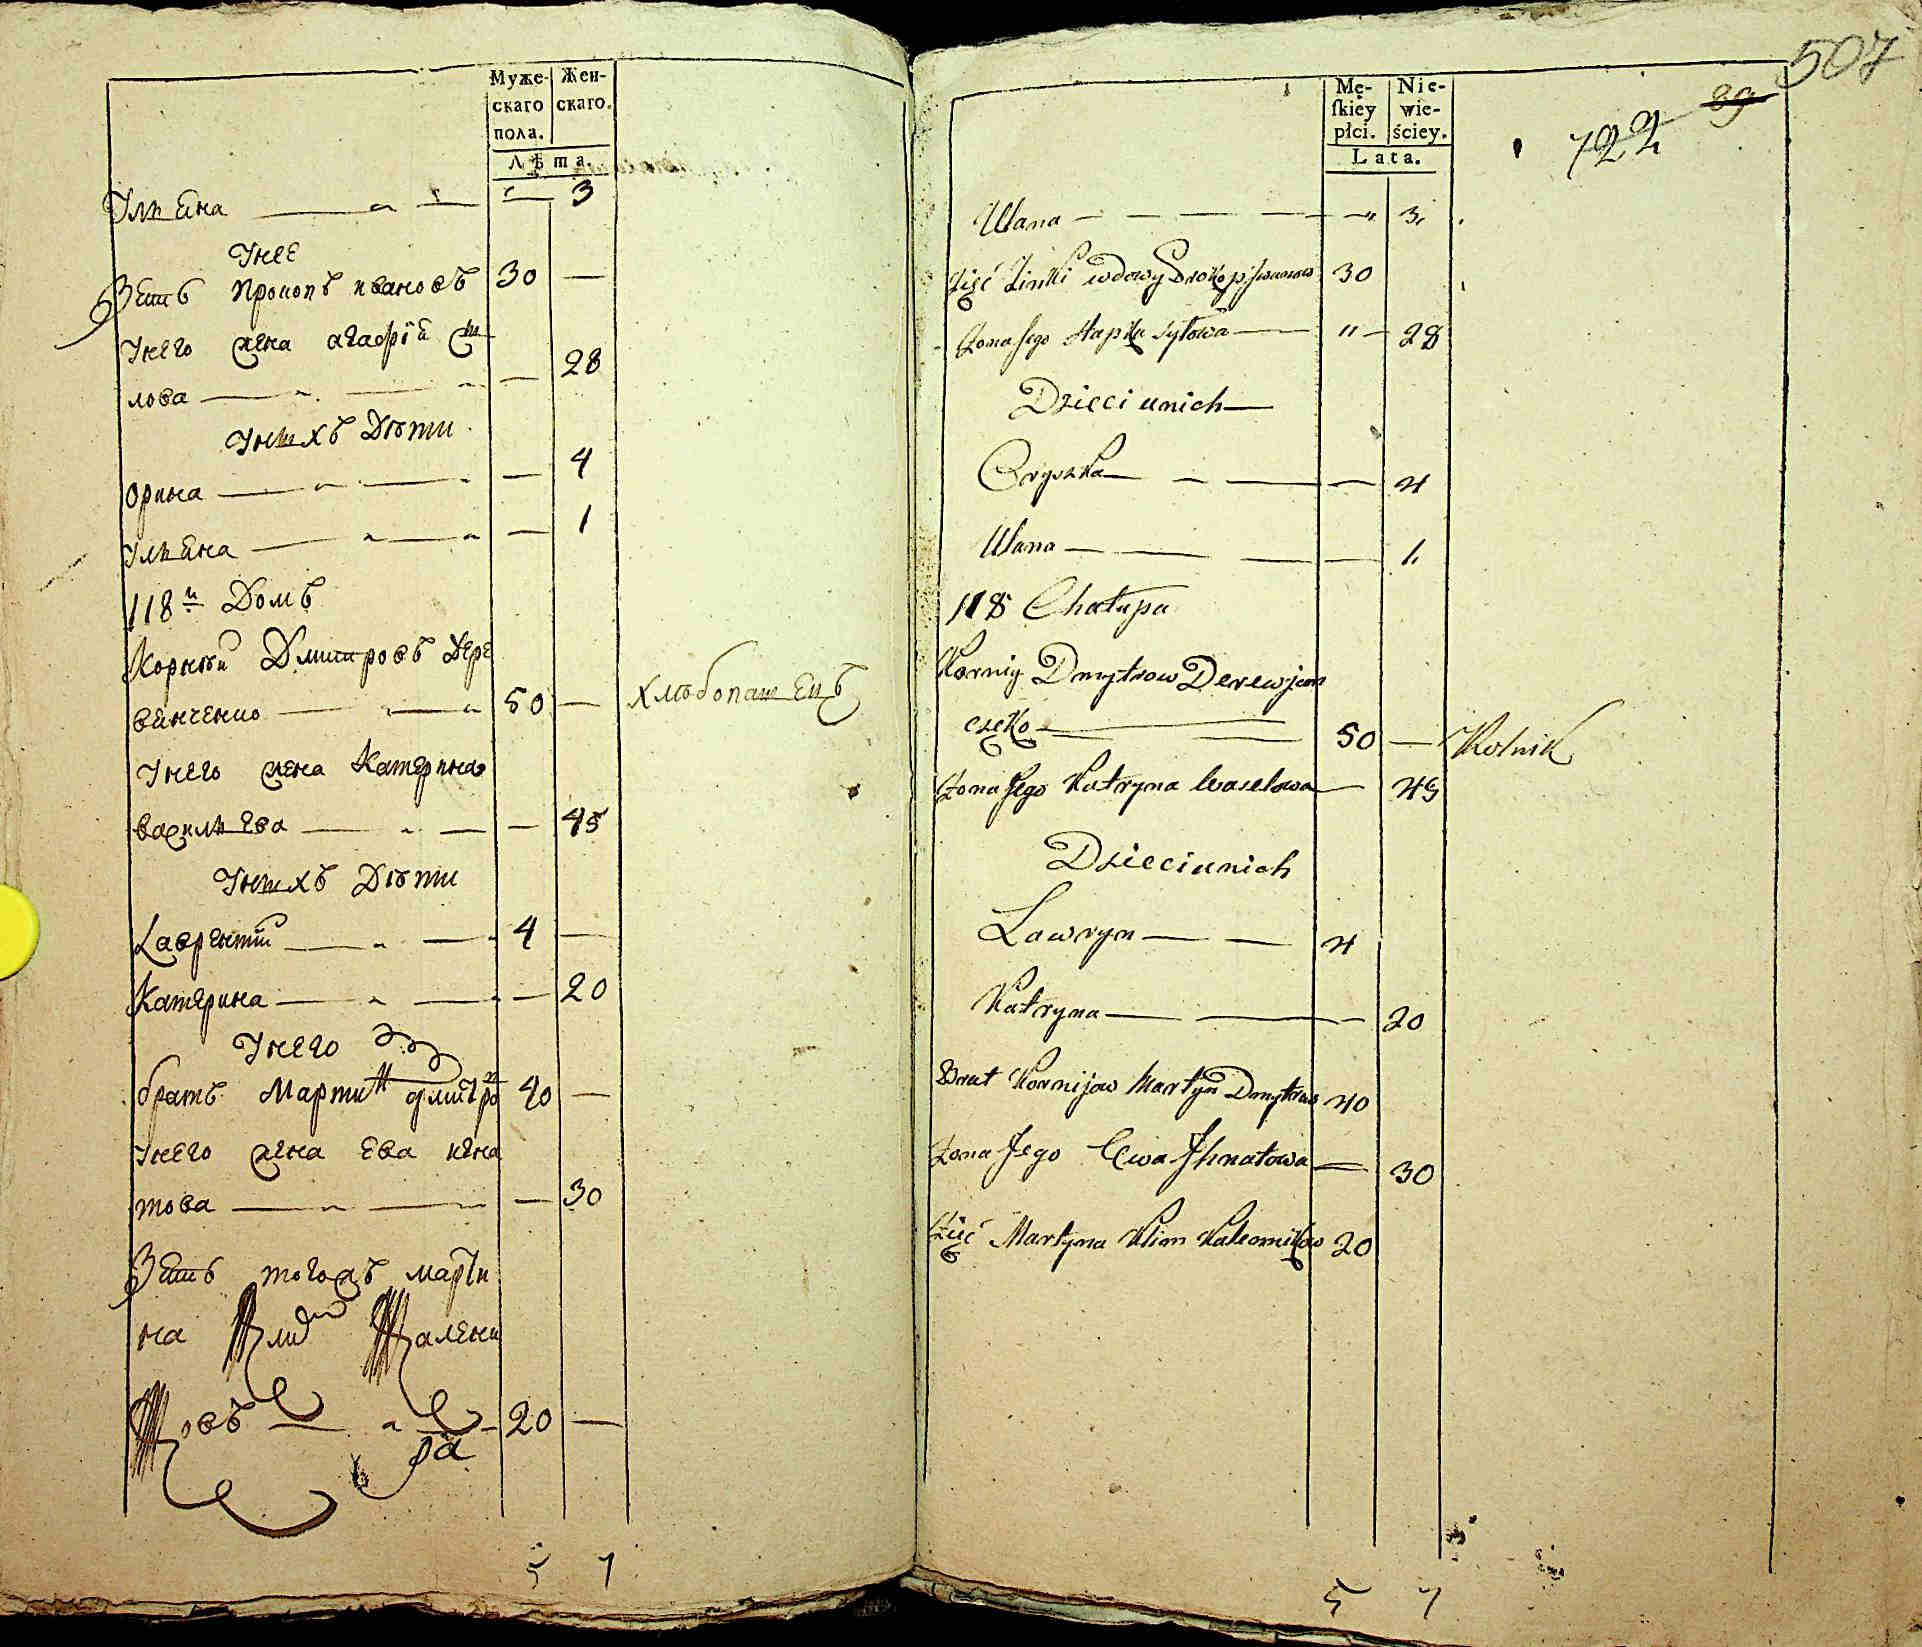 Муже-
скаго
пола.
Жен-
скаго.
Лѣта.
Ульяна — — " 3
Унее
Зять Прокопъ ивановъ 30 —
Унего жена агафїя ти
лова — — — 28
Унихъ Дѣти
орина — — — 4
Ульяна — — — 1
118й Домъ
Корнѣй Дмитровъ Дере
вянченко — — 50 — хлѣбопашецъ
Унего жена Катерина
васильева — — — 45
Унихъ Дѣти
Лаврентїй — — 4 —
Катерина — — — 20
Унего
братъ Мартин дмитро 40 —
Унего жена Ева игна
това — — — 30
Зять тогожъ марти
на Клим Калени
ковъ — — 20 —
ра
5 7
507
89
722
Mę-
skiey
płci.
Nie-
wie-
ściey.
Lata.
Ulana — — — — " 3
Zięć Zinki wdowy Prokop Iwanow 30
Żona Jego Hapka Tytowa — " — 28
Dzieci unich —
Oryszka — — — — 4
Ulana — — — — 1
118 Chałupa
Korniy Dmytrow Derewjan
częko — — 50 — Rolnik
Żona Jego Katryna Waselowa — 45
Dzieci unich
Lawryn — — 4
Katryna — — — 20
Brat Kornijow Martyn Dmytrow 40
Żona Jego Ewa Jhnatowa — 30
Zięć Martyna Klim Kalennikow 20
5 7